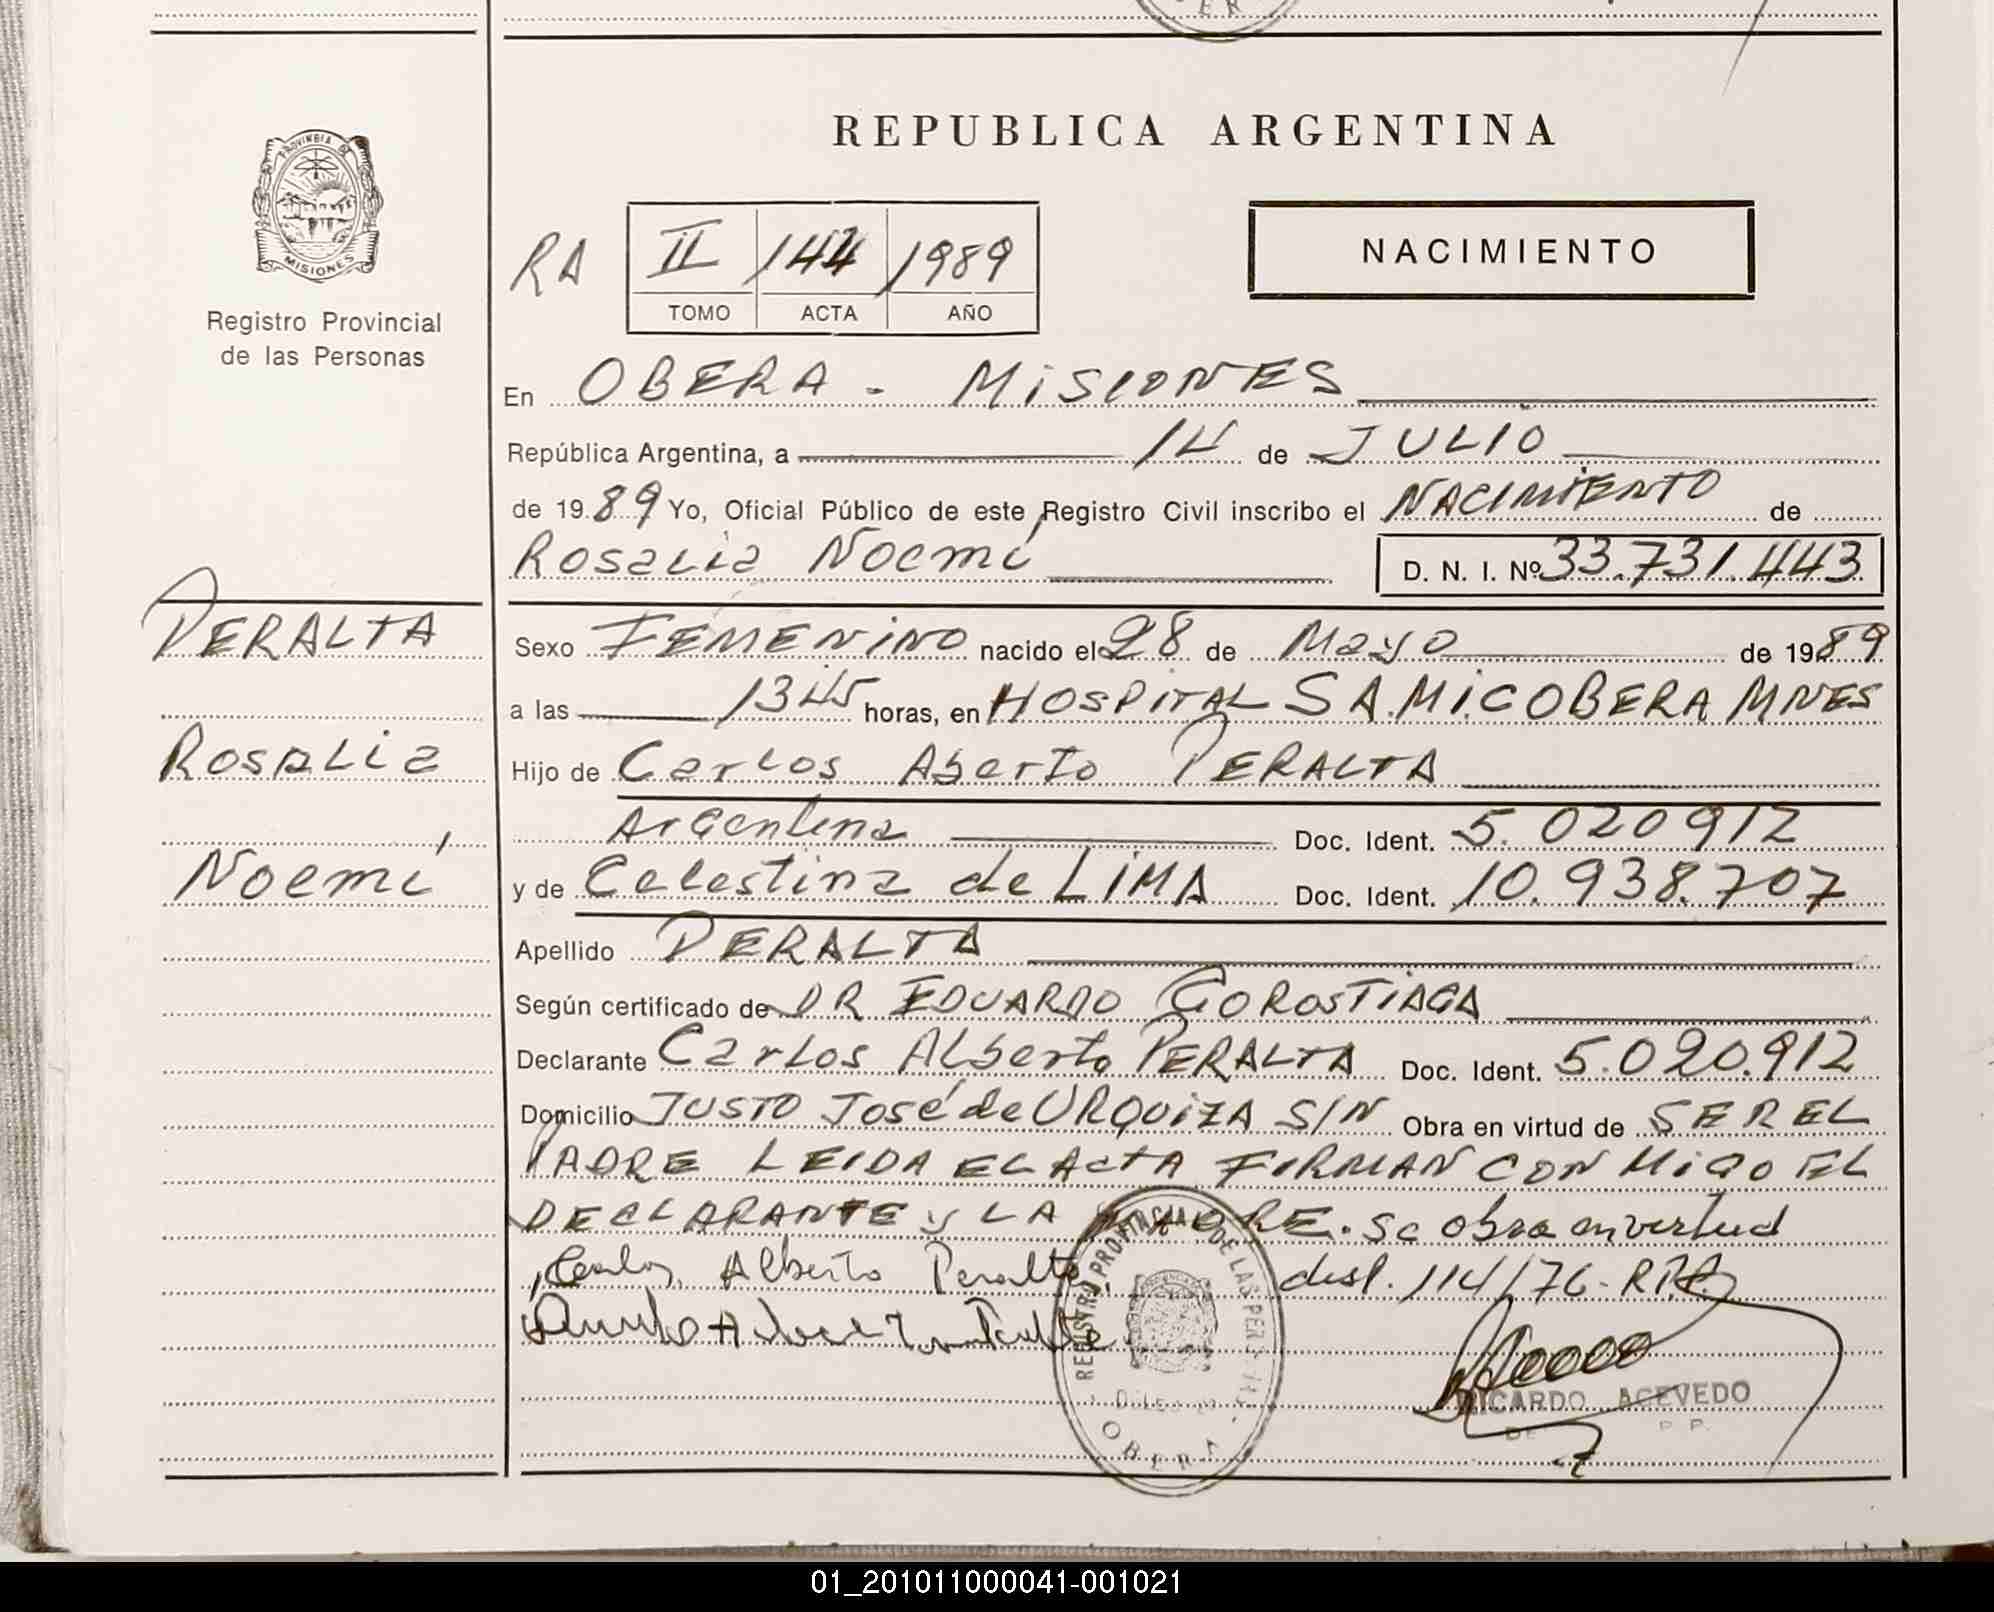 PROVINCIA DE
MISIONES
Registro Provincial
de las Personas
REPUBLICA ARGENTINA
RA II 144 1989
TOMO ACTA AÑO
NACIMIENTO
En OBERA - MISIONES
República Argentina, a 14 de JULIO
de 1989 Yo, Oficial Público de este Registro Civil inscribo el NACIMIENTO de
Rosalia Noemí D. N. I. Nº 33.731.443
PERALTA
Rosalia
Noemí
Sexo FEMENINO nacido el 28 de Mayo de 1989
a las 1345 horas, en HOSPITAL S A.M.I.C OBERA MNES
Hijo de Carlos Aberto PERALTA
Argentina Doc. Ident. 5.020912
y de Celestina de LIMA Doc. Ident. 10.938.707
Apellido PERALTA
Según certificado de DR EDUARDO GOROSTIAGA
Declarante Carlos Alberto PERALTA Doc. Ident. 5.020.912
Domicilio JUSTO José de URQUIZA S/N Obra en virtud de SER EL
PADRE LEIDA EL ACTA FIRMAN CON MIGO EL
DECLARANTE y LA MADRE. Se obra en virtud
Carlos Alberto Peralta disp. 114/76-R.P.P.
REGISTRO PROVINCIAL DE LAS PERSONAS
OBERA
RICARDO ACEVEDO
01_201011000041-001021